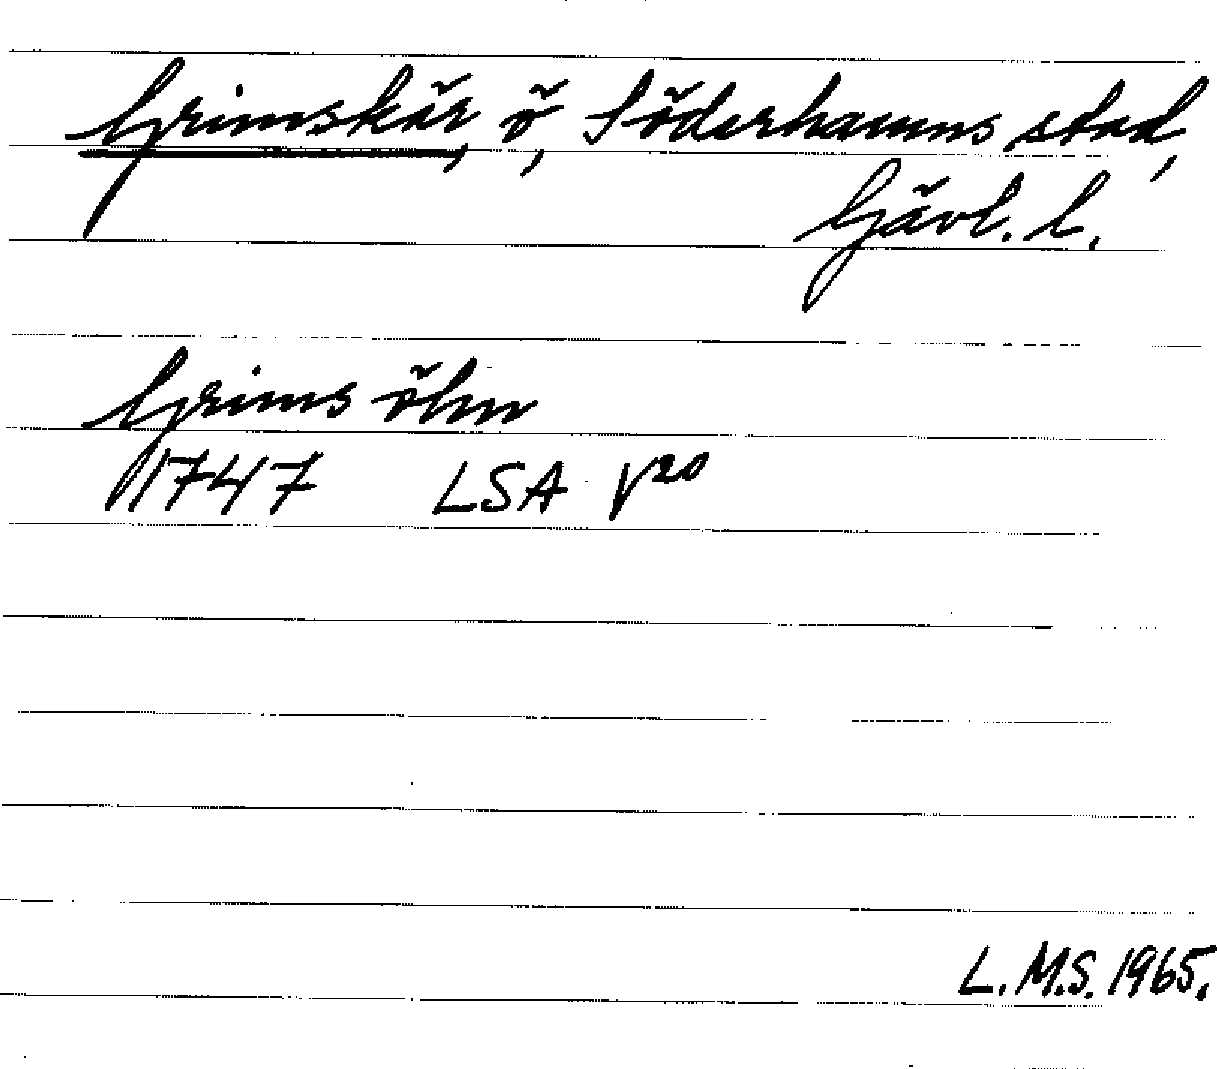 Grimskär, ö, Söderhamns stad,
Gävl. l.
Grims öhn
1747 LSA V20
L. M.S. 1965.